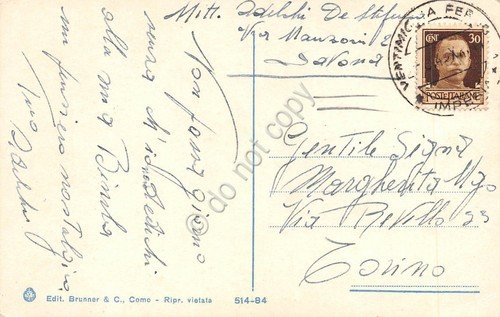 Mitt. Adelchi De Stefani
Via Manzoni 2
Savona
Non passa giorno
senza ch'io dedichi
alla mia Bimba
un pensiero nostalgico
Tuo
Adelchi
VENTIMIGLIA FERR
IMPER
CENT 30
POSTE ITALIANE
Gentile Sign
Margherita
Via 25
Torino
do not copy
Edit. Brunner & C., Como - Ripr. vietata
514-84